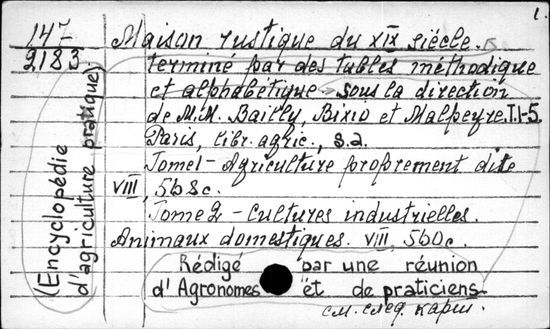 1.
147 Maison rustique du XIX siécle.
2183 terminé par des tables méthodique
et alphabétique - sous la direction
de M.M. Bailly, Bixio et Malpeyre. T.1-5.
Paris, libr. agric., s.a.
Tome 1 - Agriculture proprement dite
VIII, 568 c.
Tome 2 - Cultures industrielles.
Animaux domestiques. VIII, 560 c.
(Encyclopédie
d'agriculture pratique)
Rédigé par une réunion
d'Agronomes et de praticiens
см. след. карт.